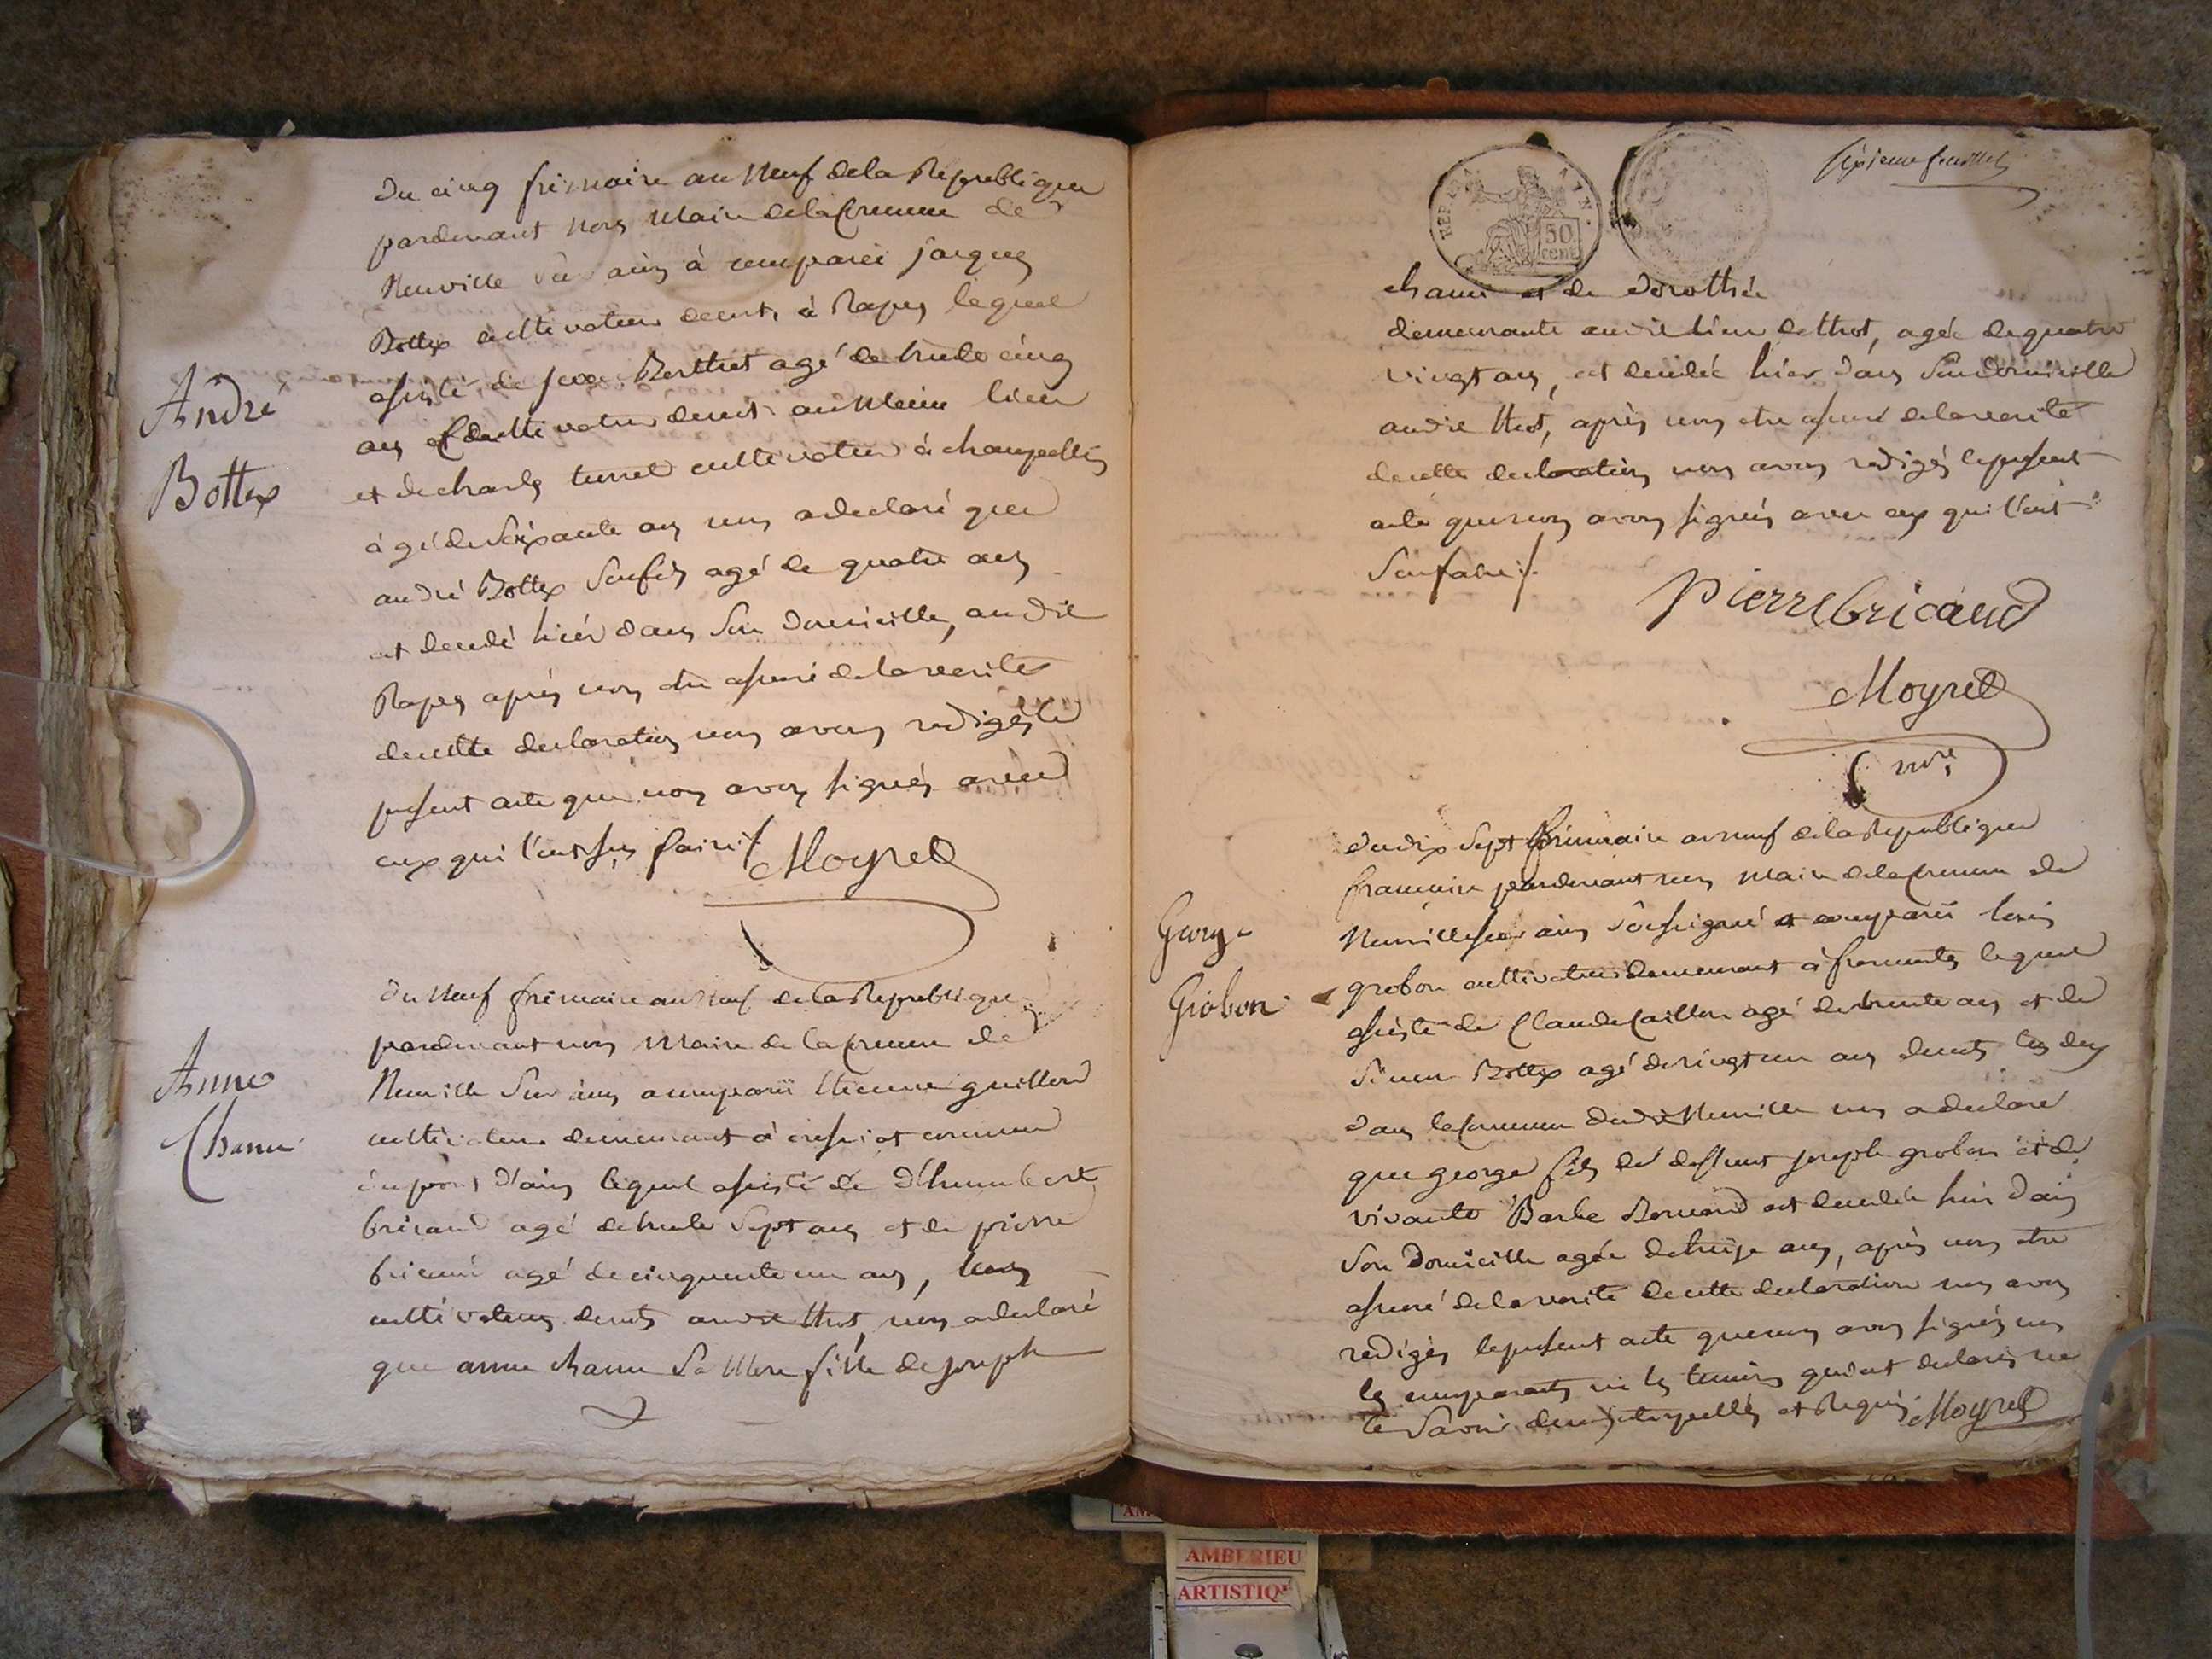 Du cinq frimaire an Neuf de la Republique
pardevant nous Maire de la Commune de
Neuville sur ain à comparu jacques
Bottex cultivateur demt. à Rapes lequel
assisté de Berthet agé de trente cinq
ans cultivateur demt. au Meme lieu
et de charles turrel cultivateur à champollon
àgé de Soixante ans nous a declaré que
andré Bottex Son fils agé de quatre ans
est decedé hiér dans Son Domicille, audit
Rapes après nous etre assuré de la verité
de cette declaration nous avons redigés le
present acte que nous avons signés avec
eux qui l'ont sçu faire ./. Moyret
André
Bottex
Du Neuf frimaire an Neuf de la Republique
pardevant nous Maire de la Commune de
Neuville Sur ain a comparu Etienne guillon
cultivateur demeurant à commune
du pont d'ain lequel assisté de d'humbert
bricaud agé de trente Sept ans et de pierre
bricaud agé de cinquante un ans, tous
cultivateurs demts audit thot, nous a declaré
que anne chanu Sa Mere fille de joseph
Anne
Chanu
Sixieme feuillet
REP. FRA
50
cent
chanu et de Dorothée
demeurante audit lieu de thot, agée de quatre
vingt ans, est decedée hier dans Son Domicille
audit thot, après nous etre assuré de la verité
de cette declaration nous avons redigés le present
acte que nous avons signés avec eux qui l'ont
Sçu faire ./.
Pierre bricaud
Moyret
mre
Du dix Sept frimaire an neuf de la Republique
francaise pardevant nous Maire de la Commune de
Neuville sur ain Soussigné est comparu louis
grobon cultivateur demeurant à fromente lequel
assisté de Claude Caillon agé de trente ans et de
Simon Bottex agé de vingt un ans demts les deux
dans la Commune dudit Neuville nous a declaré
que george fils de deffunt joseph grobon et de
vivante Barbe est decedé hier dans
Son Domicille agée de treize ans, après nous etre
assuré de la verité de cette declaration nous avons
redigés le present acte que nous avons signés non
les comparants ni les temoins qui ont declarés ne
le Savoir de ce interpellés et Requis Moyret
George
Grobon
AMBERIEU
ARTISTIQUE